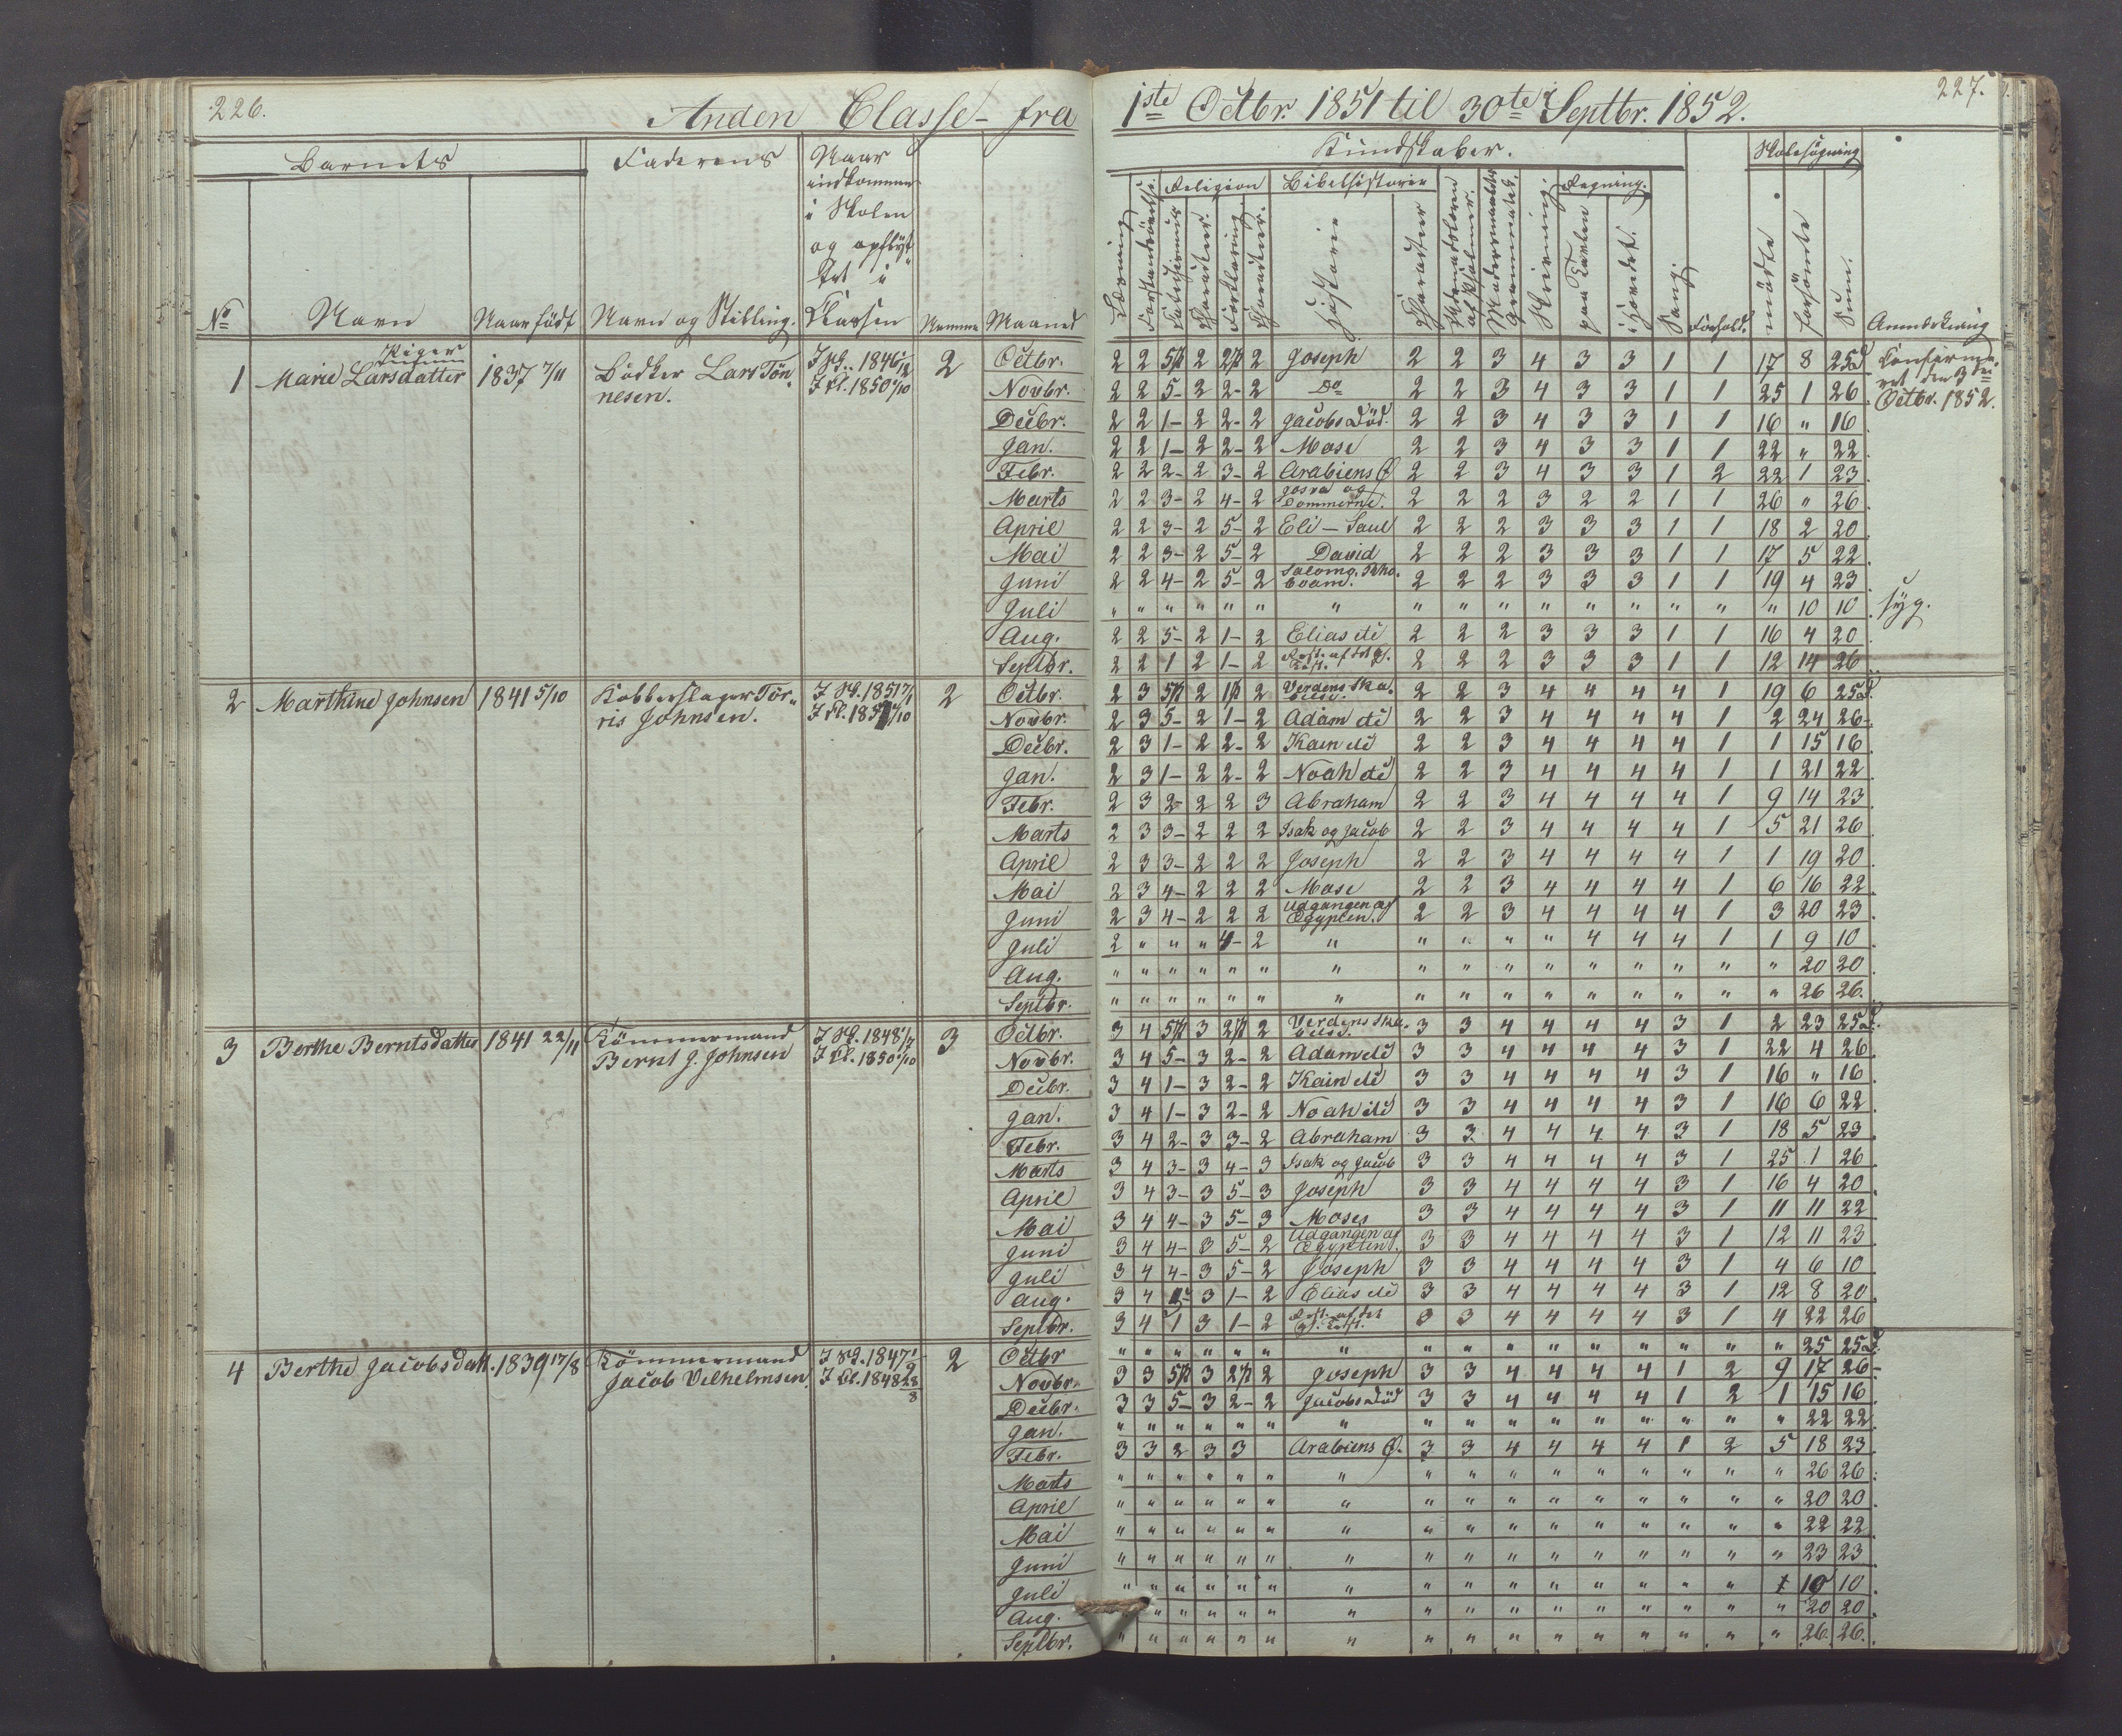 226.
Anden Classe fra
Barnets Faderens Naar indkommen i Skolen og opflyttet i Classen
No Navn Naar födt Navn og Stilling. Numme Maaned
Piger
1 Marie Larsdatter 1837 7/11 Bödker Lars Tön-
nesen.
2
J Cl. 1850 1/10
2 Marthine Johnsen 1841 5/10 Kobberslager Tör-
ris Johnsen.
2
3 Berthe Berntsdatter 1841 22/11 Tömmermand
Bernt J. Johnsen
J Sk. 1848 1/7
J Cl. 1850 1/10
3
4 Berthe Jacobsdatt. 1839 17/8 Tömmermand
Jacob Vilhelmsen.
2
227.
1ste Octbr. 1851 til 30te Septbr. 1852.
Kundskaber. Skolesøgning
Religion Bibelhistorie Regning.
Læsning Forklaring Historie Charakteer Skrivning. paa Tavlen i Hovedet. Sang. Forhold. mödte forsömte Sum. Anmærkning
Octbr. 2 2 5 2 2 2 Joseph 2 2 3 4 3 3 1 1 17 8 25d Confirme-
Novbr. 2 2 5- 2 2- 2 Do 2 2 3 4 3 3 1 1 25 1 26 ret den 3die
Decbr. 2 2 1- 2 2- 2 Jacobs Död. 2 2 3 4 3 3 1 1 16 " 16 Octbr. 1852.
Jan. 2 2 1- 2 2- 2 Mose 2 2 3 4 3 3 1 1 22 " 22
Febr. 2 2 2- 2 3- 2 Arabiens Ø 2 2 3 4 3 3 1 2 22 1 23
Marts 2 2 3- 2 4- 2 Josva og Dommerne. 2 2 2 3 2 2 1 1 26 " 26
April 2 2 3- 2 5- 2 Eli - Saul 2 2 2 3 3 3 1 1 18 2 20
Mai 2 2 3- 2 5- 2 David 2 2 2 3 3 3 1 1 17 5 22
Juni 2 2 4- 2 5- 2 Salomo. 2 2 2 3 3 3 1 1 19 4 23
Juli " " " " " " " " " " " " " " " " 10 10 syg.
Aug. 2 2 5- 2 1- 2 Elias etc 2 2 2 3 3 3 1 1 16 4 20
Septbr. 2 2 1 2 1- 2 2 2 2 3 3 3 1 1 12 14 26
Octbr. 2 3 5 2 1 2 Verdens Ska-
belse. 2 2 3 4 4 4 4 1 19 6 25d.
Novbr. 2 3 5- 2 1- 2 Adam etc 2 2 3 4 4 4 4 1 2 24 26-
Decbr. 2 3 1- 2 2- 2 Kain etc 2 2 3 4 4 4 4 1 1 15 16
Jan. 2 3 1- 2 2- 2 Noah etc 2 2 3 4 4 4 4 1 1 21 22
Febr. 2 3 2- 2 2 3 Abraham 2 2 3 4 4 4 4 1 9 14 23
Marts 2 3 3- 2 2 2 Isak og Jacob 2 2 3 4 4 4 4 1 5 21 26
April 2 3 3- 2 2 2 Joseph 2 2 3 4 4 4 4 1 1 19 20
Mai 2 3 4- 2 2 2 Mose 2 2 3 4 4 4 4 1 6 16 22
Juni 2 3 4- 2 2 2 Udgangen af Ægypten. 2 2 3 4 4 4 4 1 3 20 23
Juli 2 " " " 4- 2 " " " " " 4 4 4 1 1 9 10
Aug. " " " " " " " " " " " " " " " " 20 20
Septbr. " " " " " " " " " " " " " " " " 26 26.
Octbr. 3 4 5 3 2 2 Verdens Ska-
belse. 3 3 4 4 4 4 3 1 2 23 25d.
Novbr. 3 4 5- 3 2- 2 Adam etc 3 3 4 4 4 4 3 1 22 4 26
Decbr. 3 4 1- 3 2- 2 Kain etc 3 3 4 4 4 4 3 1 16 " 16
Jan. 3 4 1- 3 2- 2 Noah etc 3 3 4 4 4 4 3 1 16 6 22
Febr. 3 4 2- 3 3- 2 Abraham 3 3 4 4 4 4 3 1 18 5 23
Marts 3 4 3- 3 4- 3 Isak og Jacob 3 3 4 4 4 4 3 1 25 1 26
April 3 4 3- 3 5- 3 Joseph 3 3 4 4 4 4 3 1 16 4 20
Mai 3 4 4- 3 5- 3 Moses 3 3 4 4 4 4 3 1 11 11 22
Juni 3 4 4- 3 5- 2 Udgangen af Ægypten. 3 3 4 4 4 4 3 1 12 11 23
Juli 3 4 4- 3 5- 2 Joseph 3 3 4 4 4 4 3 1 4 6 10
Aug. 3 4 3 1- 2 Elias etc 3 3 4 4 4 4 3 1 12 8 20
Septbr. 3 4 1 3 1- 2 3 3 4 4 4 4 3 1 4 22 26
Octbr " " " " " " " " " " " " " " " " 25 25d.
Novbr. 3 3 5 3 2 2 Joseph 3 3 4 4 4 4 1 2 9 17 26-
Decbr. 3 3 5- 3 2- 2 Jacobs Död 3 3 4 4 4 4 1 2 1 15 16
Jan. " " " " " " " " " " " " " " " " 22 22
Febr. 3 3 2 3 3 Arabiens Ø. 3 3 4 4 4 4 1 2 5 18 23
Marts " " " " " " " " " " " " " " " " 26 26
April " " " " " " " " " " " " " " " " 20 20
Mai " " " " " " " " " " " " " " " " 22 22
Juni " " " " " " " " " " " " " " " " 23 23
Juli " " " " " " " " " " " " " " " 10 10
Aug. " " " " " " " " " " " " " " 20 20
Septbr. " " " " " " " " " " " " " " " " 26 26